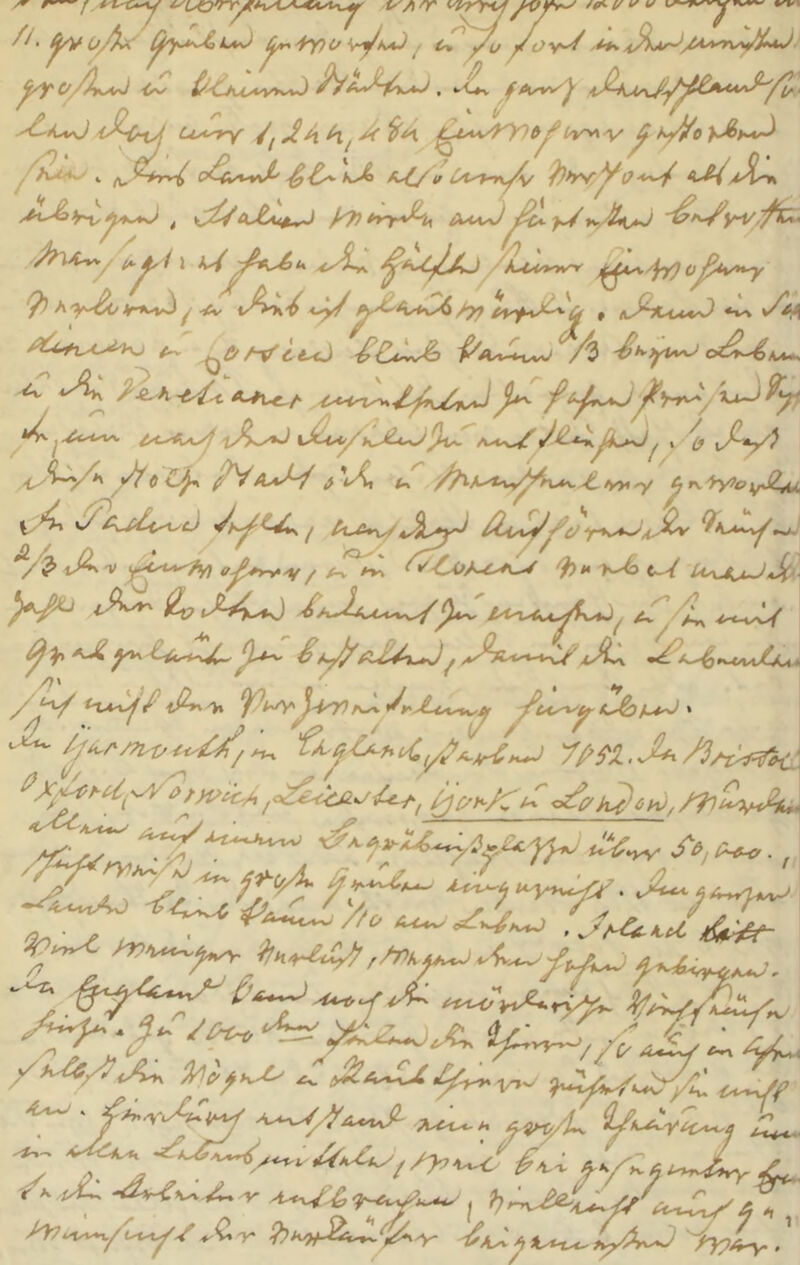 11. große Gruben geworfen, u so fort in den meisten
großen u kleinen Städten. In ganz Deutschland so
len doch nur 1,244,484 Einwohner gestorben
sein. Dies Land blieb also mehr verschont als die
übrigen. Italien wurde am härtesten betroffen
Man sagt: es habe die Hälfte seiner Einwohner
verloren, u dies ist glaubwürdig. denn in Sar
dinien u Corsica blieb kaum 1/3 beym Leben
u die Venetianer mietheten zu hohen Preisen Schif
fe, um nach den Inseln zu entfliehen, so daß
diese stolze Stadt öde u Menschenleer geworden
In Padua fehlten, nach dem Aufhören der Seuche
2/3 der Einwohner, u in Florenz verbot man die
Zahl der Todten bekannt zu machen, u sie mit
Grabgeläute zu bestatten, damit die Lebenden
sich nicht der Verzweifelung hingäben.
In Yarmouth, in England, starben 7052. In Bristol
Oxford, Norwich, Leicester, York u London, wurden
allein auf einem Begräbnißplatze über 50,000.,
schichtweise in große Gruben eingereiht. Im ganzen
Lande blieb kaum 1/10 am Leben. Irland litt
viel weniger Verlust, wegen den hohen Gebirgen.
In England kam noch die mörderische Viehseuche
hinzu. Zu 1000den fielen die Thiere,
selbst die Vögel u Raubthiere rührten sie nicht
an. Hierdurch entstand eine große Theurung
in allen Lebensmitteln, weil bei gesegneter Ern
te die Arbeiter entbrachen, vielleicht auch Ge,
winnsucht der Verkäufer beizumessen war.